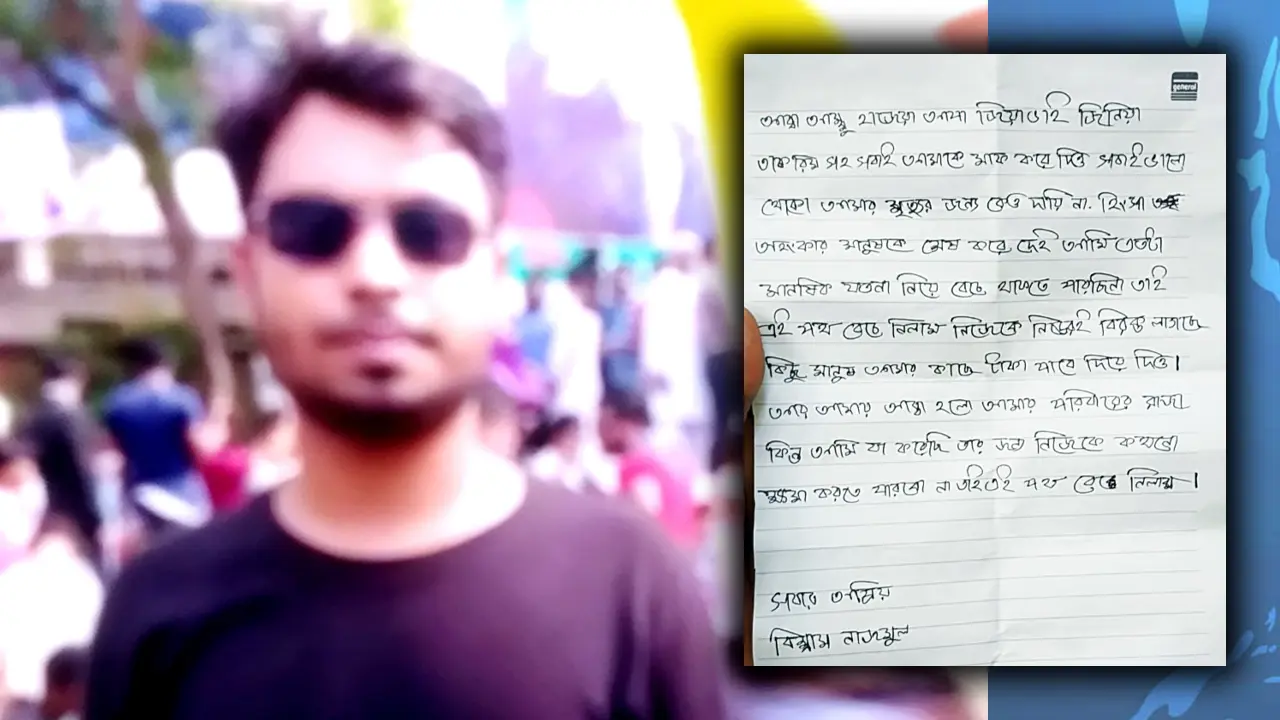 general
আব্বা আম্মু হাজেরা আপা জিয়া ভাই জিনিয়া
তাকরিম সহ সবাই আমাকে মাফ করে দিও সবাই ভালো
থেকো আমার মৃত্যুর জন্য কেও দায়ি না. হিংসা
অহংকার মানুষকে শেষ করে দেই আমি এতটা
মানষিক যন্তনা নিয়ে বেচে থাকতে পারছিনা তাই
এই পথ বেচে নিলাম নিজেকে নিজেরই বিরক্ত লাগছে
কিছু মানুষ আমার কাছে টাকা পাবে দিয়ে দিও।
আর আমার আব্বা হলো আমার পরিবারের রাজা
কিন্তু আমি যা করেছি তার জন্য নিজেকে কখনো
ক্ষমা করতে পারবো না তাই এই পথ বেচে নিলাম।
সবার অপ্রিয়
বিশ্বাস নাজমুল